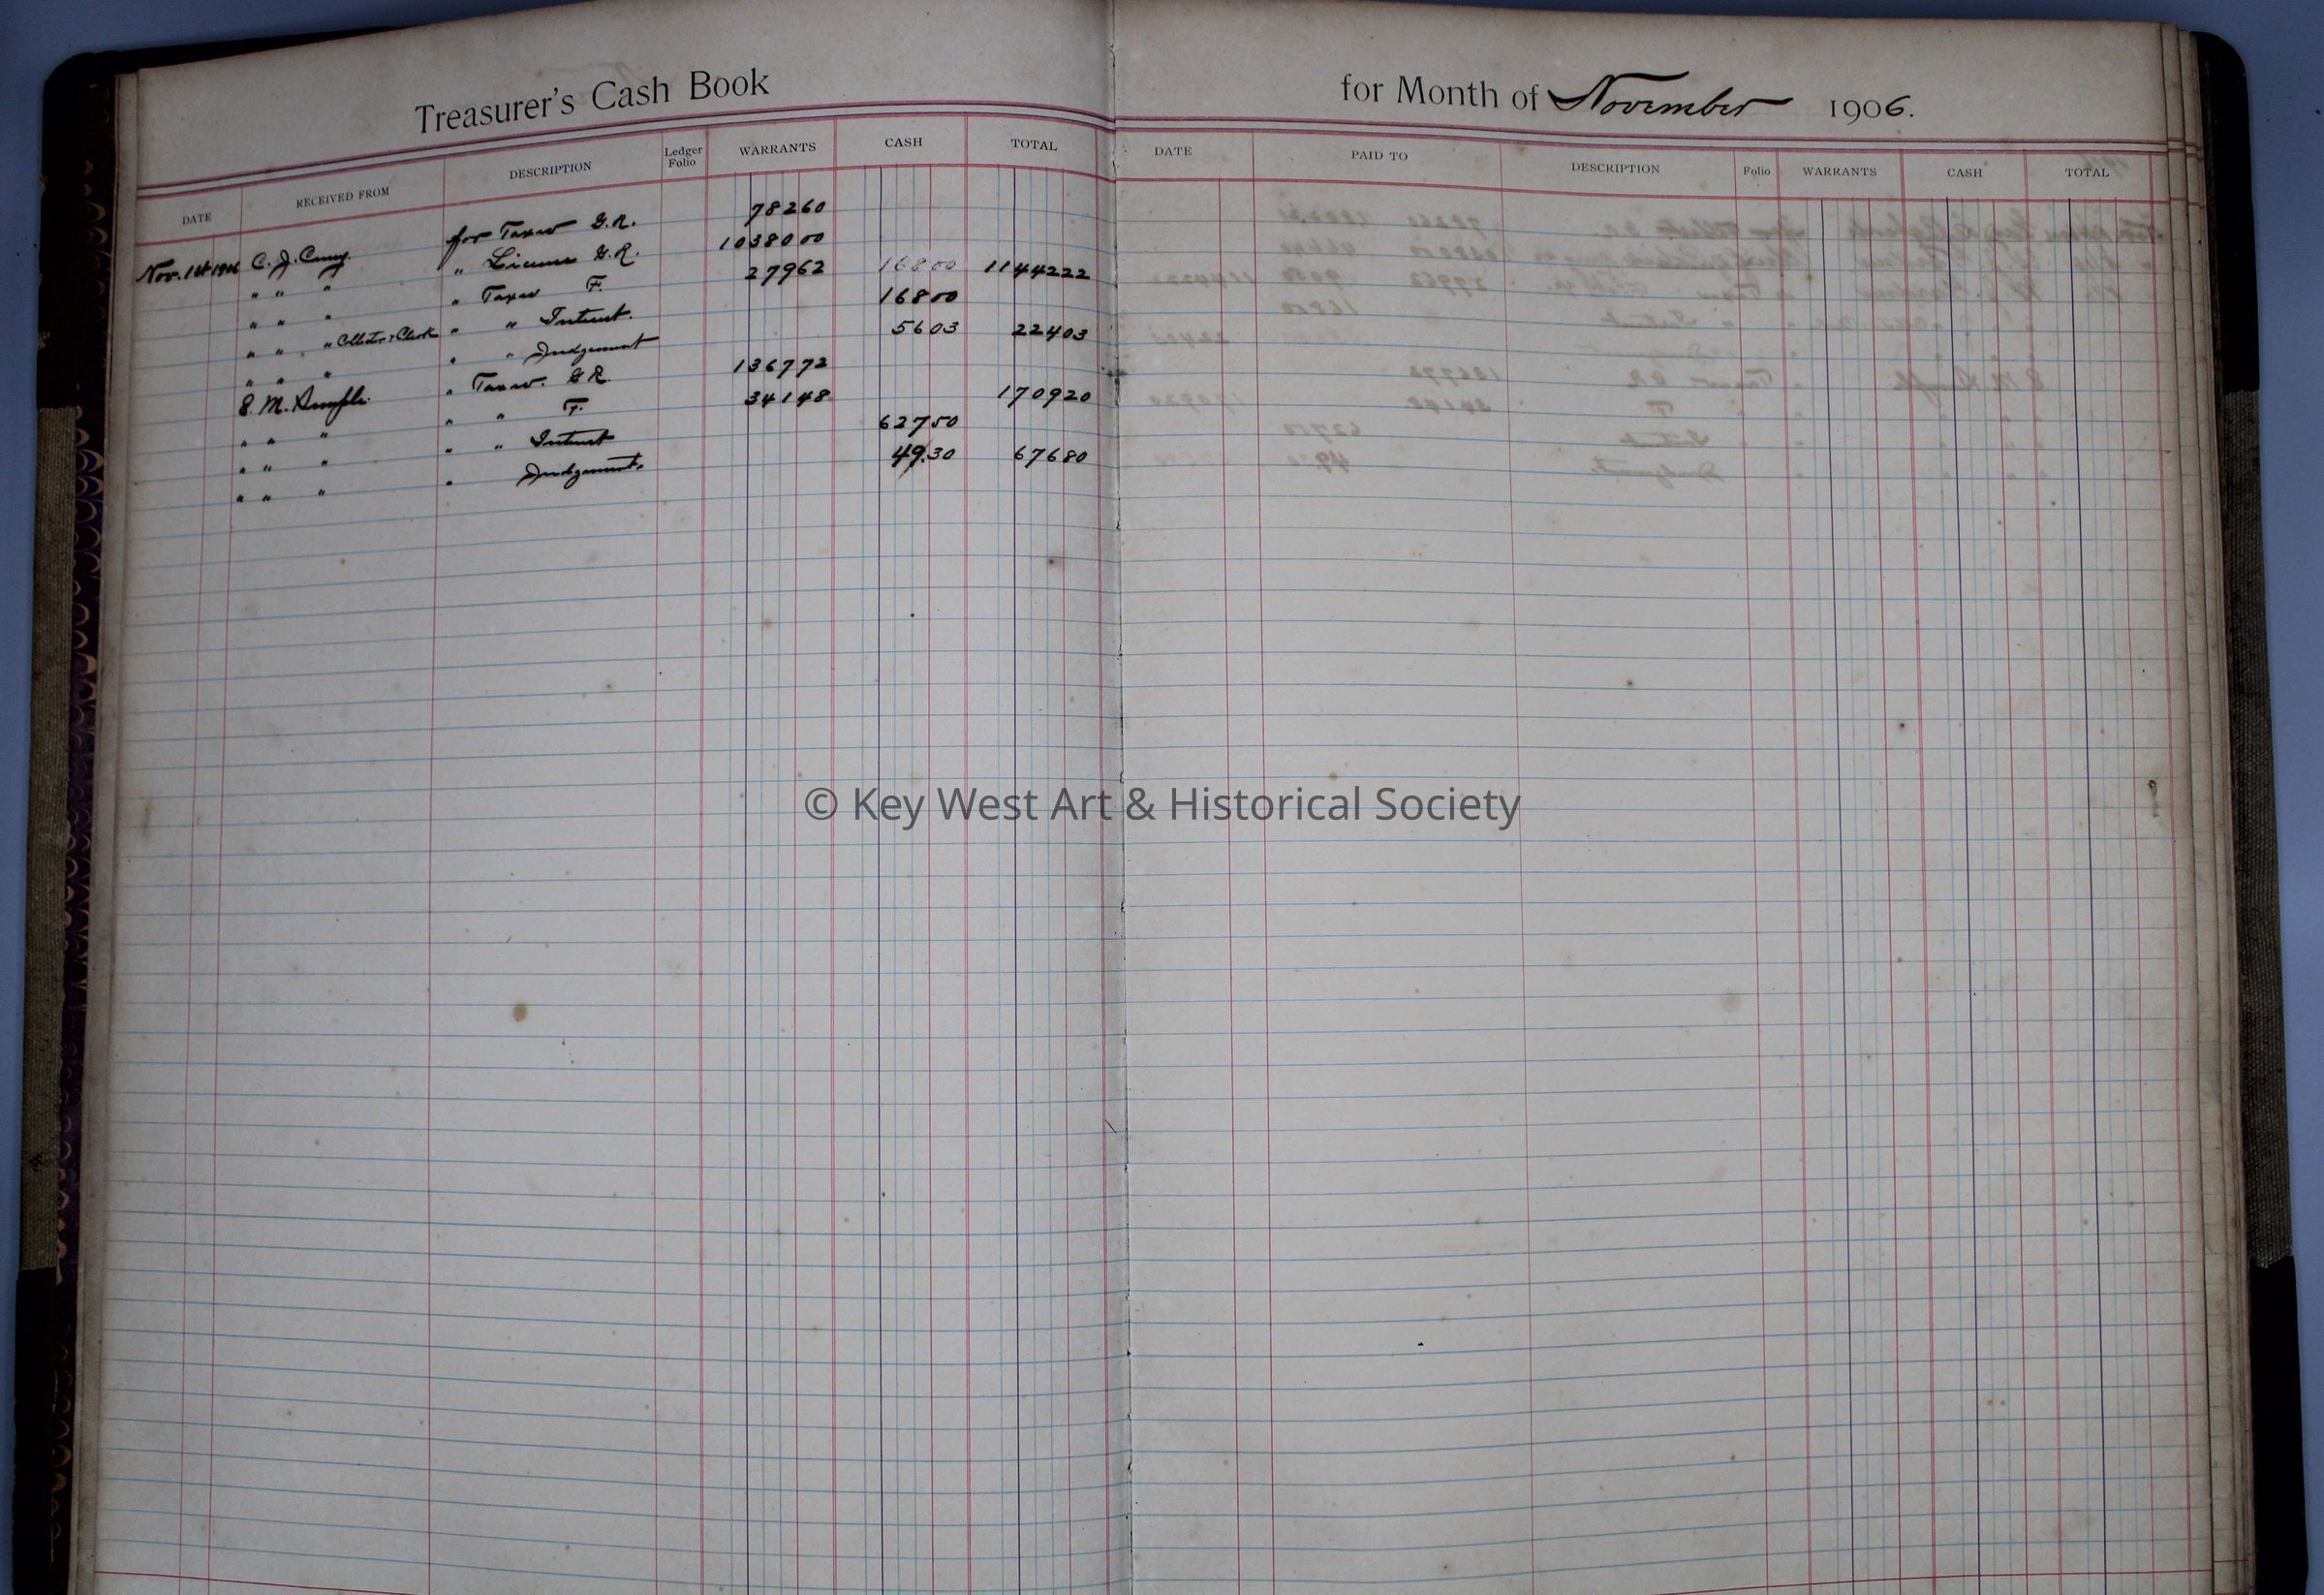 Treasurer's Cash Book for Month of November 1906.
DATE RECEIVED FROM DESCRIPTION Ledger Folio WARRANTS CASH TOTAL DATE PAID TO DESCRIPTION Folio WARRANTS CASH TOTAL
Nov. 1st 1906 C. J. Curry. for Taxes G.R. 78260
" " " " License G.R. 1038000
" " " " Taxes F. 27962 16800 1144222
" " " Collector & Clerk " " Interest. 16800
" " " " " Judgement 5603 22403
E. M. " Taxes. G.R. 136772
" " " " " F. 34148 170920
" " " " " Interest 62750
" " " " Judgement. 49.30 67680
© Key West Art & Historical Society